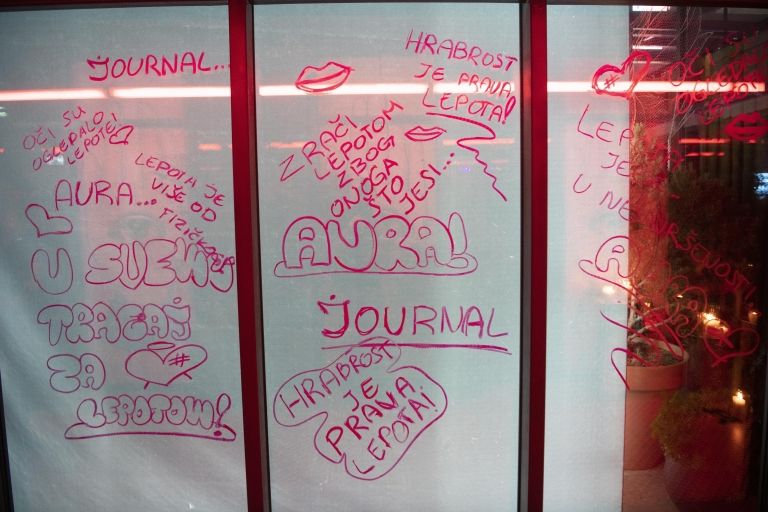 JOURNAL...
OČI SU
OGLEDALO
LEPOTE!
LEPOTA JE
VIŠE OD
FIZIČKOG
AURA...
U SVEMU
TRAGAJ
ZA
LEPOTOM!
HRABROST
JE PRAVA
LEPOTA!
ZRAČI
LEPOTOM
ZBOG
ONOGA
ŠTO
JESI...
AURA!
JOURNAL
HRABROST
JE
PRAVA
LEPOTA!
OČI SU
OGLEDALO
LEPOTE
JE
U NESAVRŠENOSTI!
AURA